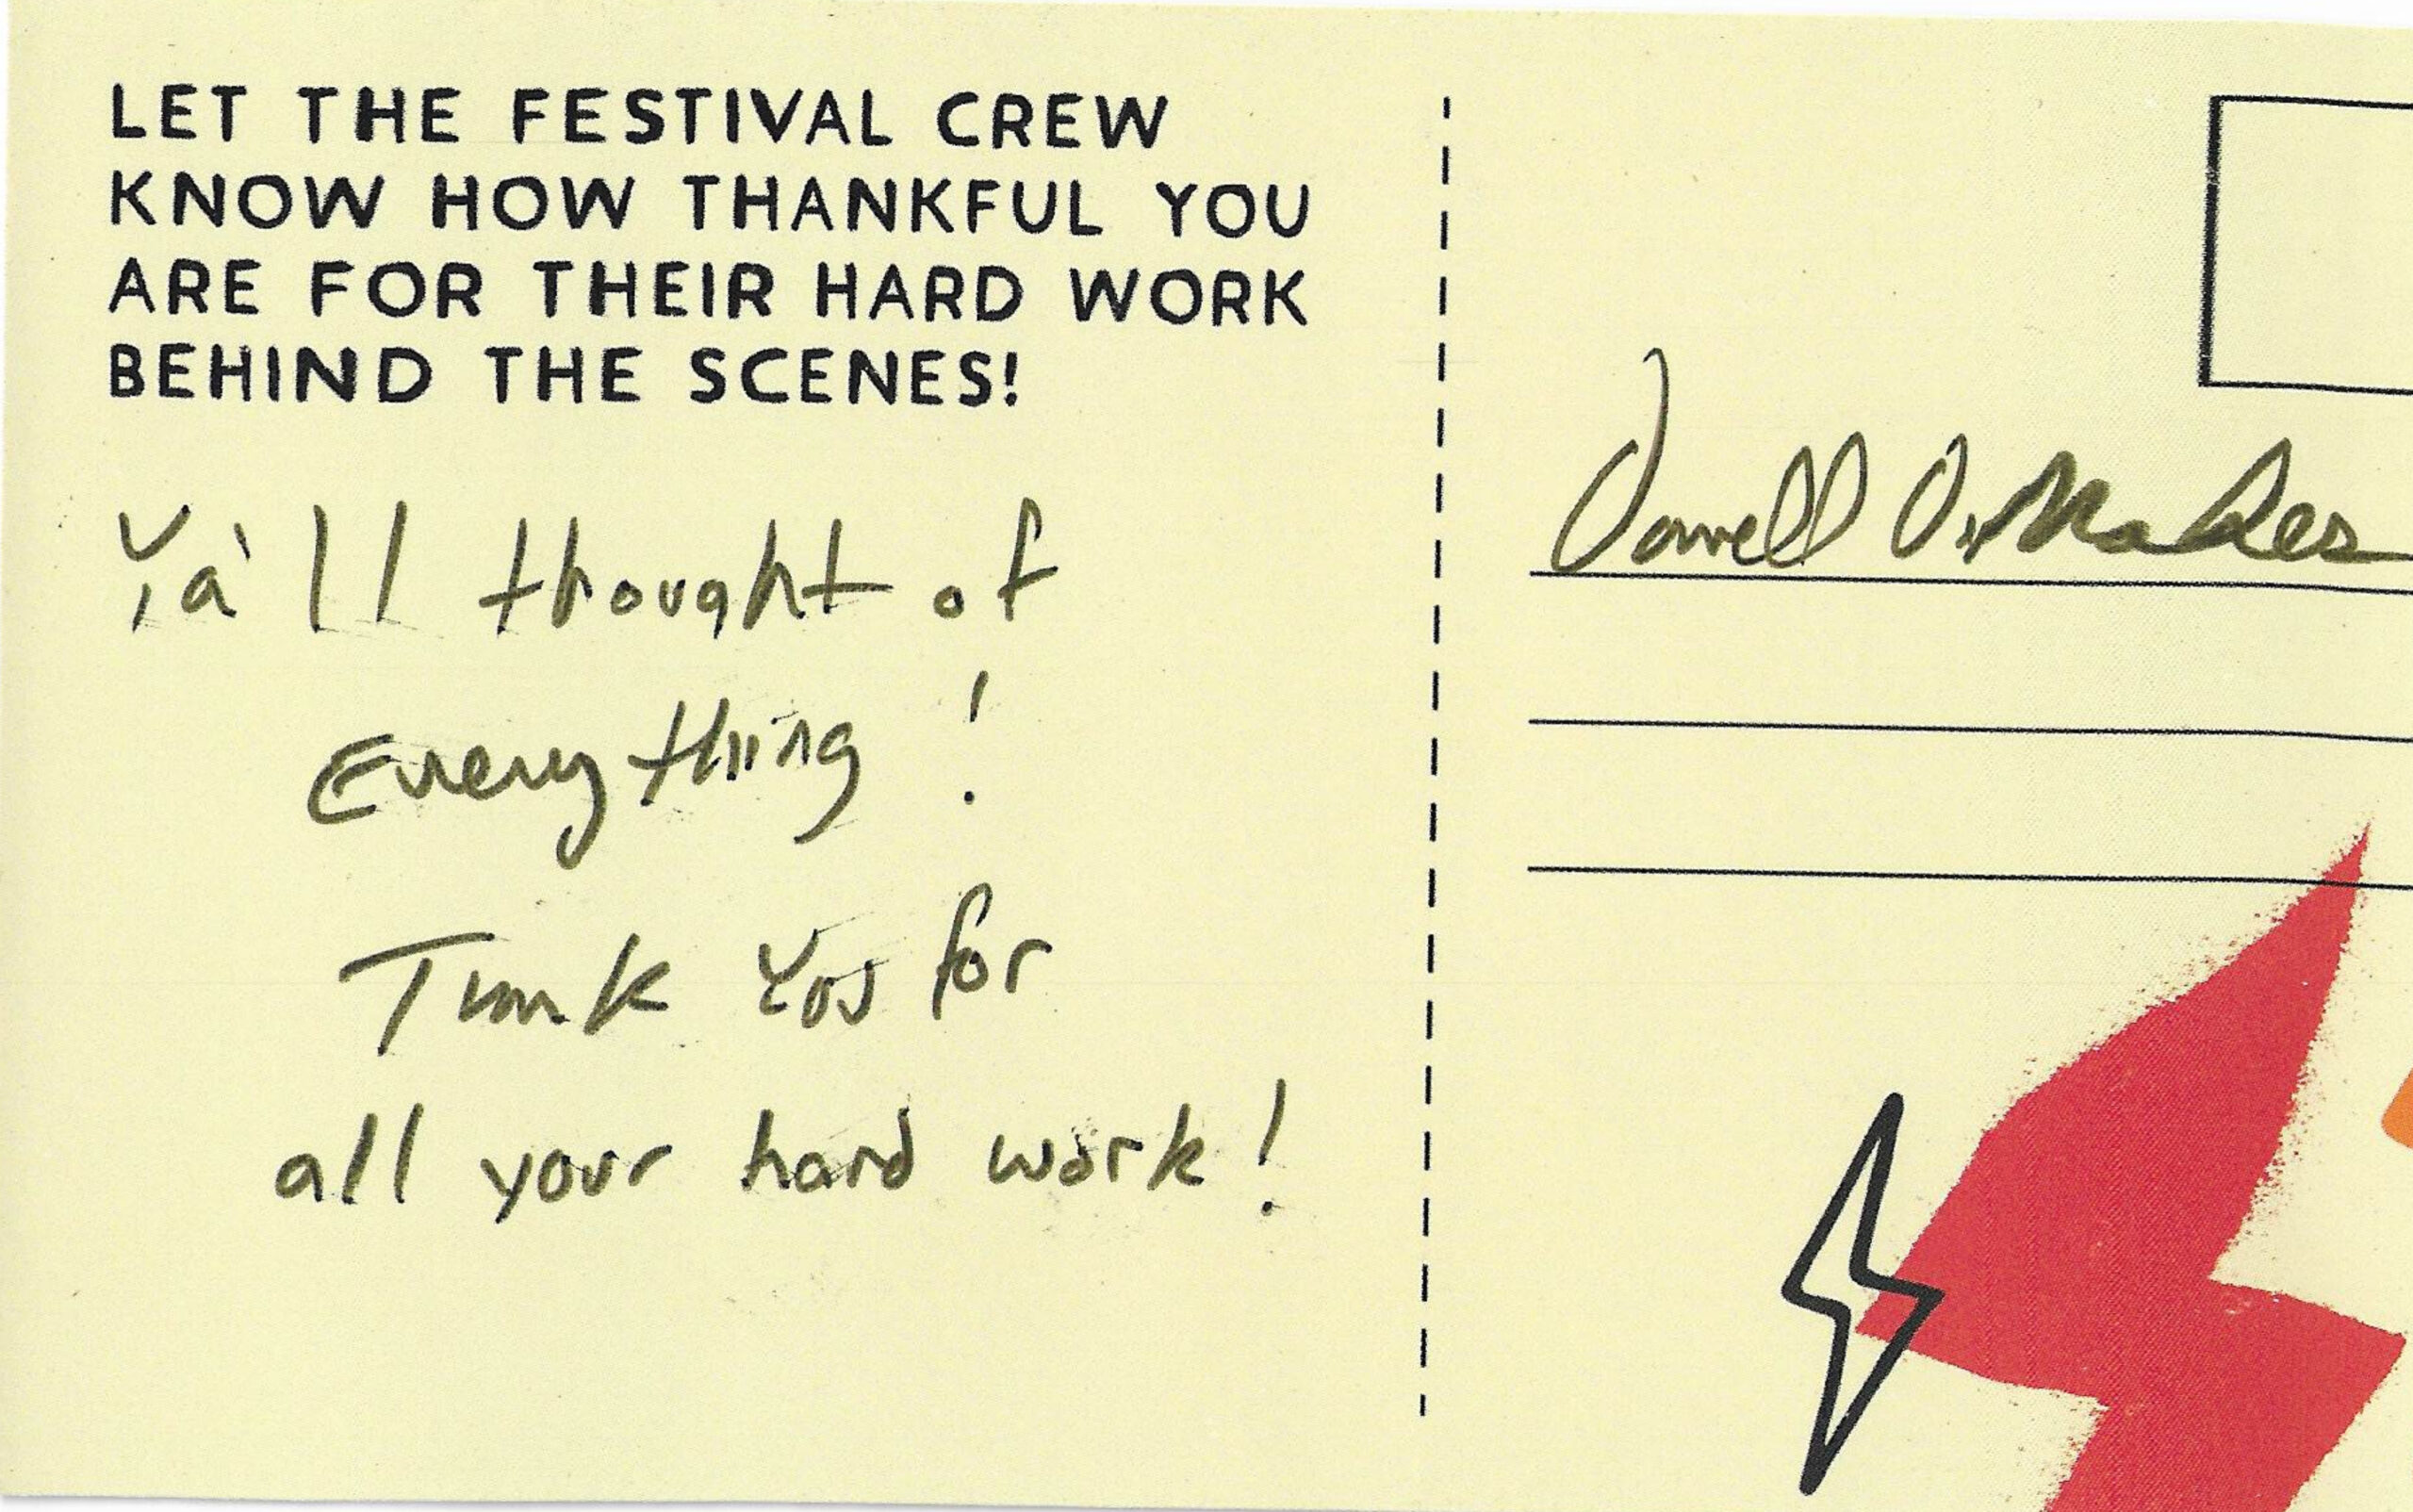 LET THE FESTIVAL CREW
KNOW HOW THANKFUL YOU
ARE FOR THEIR HARD WORK
BEHIND THE SCENES!
Ya'll thought of
Everything!
Thank You for
all your hard work!